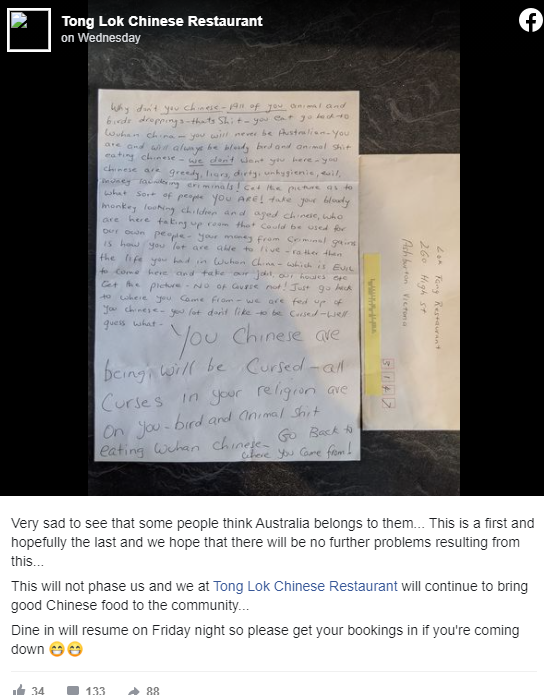 Tong Lok Chinese Restaurant
on Wednesday
Why don't you Chinese - All of you animal and
birds droppings - thats Shit - you eat go back to
Wuhan China - you will never be Australian - you
are and will always be bloody bird and animal shit
eating Chinese - we don't want you here - you
Chinese are greedy, liars, dirty, unhygienic, evil,
money laundering criminals! Get the picture as to
what sort of people YOU ARE! take your bloody
monkey looking children and aged Chinese, who
are here taking up room that could be used for
our own people - your money from Criminal gains
is how you lot are able to live - rather than
the life you had in Wuhan China - which is Evil
to come here and take our jobs, our houses etc
Get the picture - NO of course not! Just go back
to where you came from - we are fed up of
you Chinese - you lot don't like to be Cursed - well
guess what -
You Chinese are
being, will be Cursed - all
Curses in your religion are
On you - bird and animal shit
eating Wuhan Chinese - Go Back to
where you Come from!
Lok Tong Restaurant
260 High St
Ashburton Victoria
3147
Very sad to see that some people think Australia belongs to them... This is a first and
hopefully the last and we hope that there will be no further problems resulting from
this...
This will not phase us and we at Tong Lok Chinese Restaurant will continue to bring
good Chinese food to the community...
Dine in will resume on Friday night so please get your bookings in if you're coming
down 😁😁
34 133 88